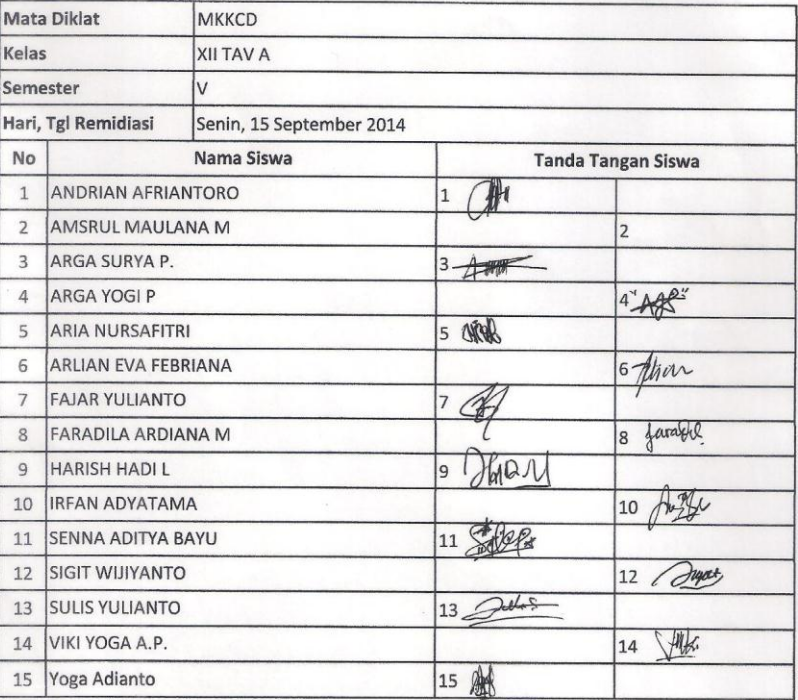 Mata Diklat MKKCD
Kelas XII TAV A
Semester V
Hari, Tgl Remidiasi Senin, 15 September 2014
No Nama Siswa Tanda Tangan Siswa
1 ANDRIAN AFRIANTORO 1
2 AMSRUL MAULANA M 2
3 ARGA SURYA P. 3
4 ARGA YOGI P 4
5 ARIA NURSAFITRI 5
6 ARLIAN EVA FEBRIANA 6
7 FAJAR YULIANTO 7
8 FARADILA ARDIANA M 8
9 HARISH HADI L 9
10 IRFAN ADYATAMA 10
11 SENNA ADITYA BAYU 11
12 SIGIT WIJIYANTO 12
13 SULIS YULIANTO 13
14 VIKI YOGA A.P. 14
15 Yoga Adianto 15